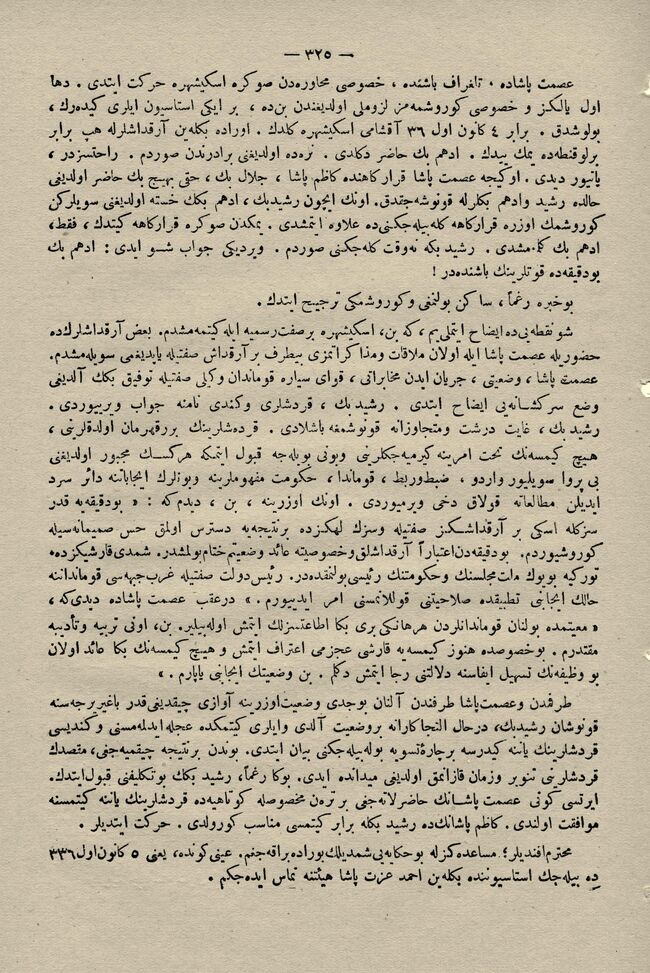 — ٣٢٥ —
عصمت پاشاده ، تلغراف باشنده ، خصوصی محاوره‌دن صوکره اسکیشهره حرکت ایتدی . دها
اول یالکز و خصوصی کوروشمه‌مز لزوملی اولدیغندن بن‌ده ، بر ایکی استاسیون ایلری کیده‌رك ،
بولوشدق . برابر ٤ کانون اول ٣٦ آقشامی اسکیشهره کلدك . اوراده بکله‌ین آرقداشلرله هپ برابر
برلوقنطه‌ده یمك ییدك . ادهم بك حاضر دکلدی . نره‌ده اولدیغنی برادرندن صوردم . راحتسزدر ،
یاتیور دیدی . اوکیجه عصمت پاشا قرارکاهنده کاظم پاشا ، جلال بك ، حتی بهیج بك حاضر اولدیغی
حالده رشید وادهم بکلرله قونوشه‌جقدق. اونك ایچون رشیدبك ، ادهم بکك خسته اولدیغنی سویلرکن
کوروشمك اوزره قرارکاهه کله‌بیله‌جکنی‌ده علاوه ایتمشدی . یمکدن صوکره قرارکاهه کیتدك ، فقط،
ادهم بك کلمه‌مشدی . رشید بکه نه‌وقت کله‌جکنی صوردم . ویردیکی جواب شــو ایدی : ادهم بك
بودقیقه‌ده قوتلرینك باشنده‌در !
بوخبره رغماً ، ساکن بولنمغی وکوروشمکی ترجیح ایتدك .
شو نقطه‌یی‌ده ایضاح ایتملی‌یم ، که بن، اسکیشهره برصفت رسمیه ایله کیتمه‌مشدم. بعض آرقداشلرك‌ده
حضوریله عصمت پاشا ایله اولان ملاقات ومذاکراتمزی بیطرف بر آرقداش صفتیله یاپدیغمی سویله‌مشدم.
عصمت پاشا ، وضعیتی ، جریان ایدن مخابراتی ، قوای سیاره قوماندان وکیلی صفتیله توفیق بکك آلدیغی
وضع سرکشـانه‌یی ایضاح ایتدی . رشید بك ، قردشلری وکندی نامنه جواب ویرییوردی .
رشید بك ، غایت درشت ومتجاوزانه قونوشمغه باشلادی . قرده‌شلرینك بررقهرمان اولدقلرینی ،
هیچ کیمسه‌نك تحت امرینه کیرمیه‌جکلرینی وبونی بویله‌جه قبول ایتمکه هرکســك مجبور اولدیغنی
بی‌پروا سویلیور واردو ، ضبط‌وربط ، قوماندا ، حکومت مفهوملرینه وبونلرك ایجاباتنه دائر سرد
ایدیلن مطالعاته قولاق دخی ویرمیوردی . اونك اوزرینه ، بن ، دیدم‌که : « بودقیقه‌یه قدر
سزکله اسکی بر آرقداشـکز صفتیله وسزك لهکزده برنتیجه‌یه دسترس اولمق حس صمیمانه‌سیله
کوروشیوردم. بودقیقه‌دن‌اعتباراً آرقداشلق‌وخصوصیته عائد وضعیتم‌ختام‌بولمشدر. شمدی‌قارشیکزده
تورکیه بویوك ملت مجلسنك وحکومتنك رئیسی‌بولنمقده‌در. رئیس‌دولت صفتیله غرب‌جبهه‌سی قوماندانه
حالك ایجابنی تطبیقده صلاحیتنی قوللانمسنی امر ایدییورم .» درعقب عصمت پاشاده دیدی‌که ،
« معیتمده بولنان قوماندانلردن هرهانکی‌بری بکا اطاعتسزلك ایتمش اوله‌بیلیر. بن، اونی تربیه وتأدیبه
مقتدرم . بوخصوصده هنوز کیمسه‌یه قارشی عجزمی اعتراف ایتمش و هیـچ کیمسه‌نك بکا عائد اولان
بو وظیفه‌نك تسهیل ایفاسنه دلالتنی رجا ایتمش دکلم . بن وضعیتك ایجابنی یاپارم . »
طرفمدن وعصمت‌پاشا طرفندن آلنان بوجدی وضعیت‌اوزرینه آوازی چیقدیغی‌قدر باغیررجه‌سنه
قونوشان رشیدبك، درحال التجاکارانه بروضعیت آلدی وایلری کیتمکده عجله‌ایدلمه‌مسنی وکندیسی
قردشلرینك یاننه کیدرسه برچارۀ‌تسویه بوله‌بیله‌جکنی بیان ایتدی. بوندن برنتیجه چیقمیه‌جغی، مقصدك
قردشلرینی تنویر وزمان قازانمق اولدیغی میدانده ایدی. بوکا رغماً، رشید بکك بوتکلیفنی قبول‌ایتدك.
ایرتسی کونی عصمت پاشـانك حاضرلاته‌جغی بر ترەن مخصوصله کوتاهیه‌ده قردشلرینك یاننه کیتمسنه
موافقت اولندی. کاظم پاشانك‌ده رشید بکله برابر کیتمسی مناسب کورولدی . حرکت ایتدیلر .
محترم‌افندیلر؛ مساعده‌کزله بوحکایه‌یی‌شمدیلك‌بوراده‌براقه‌جغم. عینی‌کونده، یعنی ٥ کانون‌اول ٣٣٦
ده بیله‌جك استاسیوننده بکله‌ین احمد عزت پاشا هیئتنه تماس ایده‌جکم .